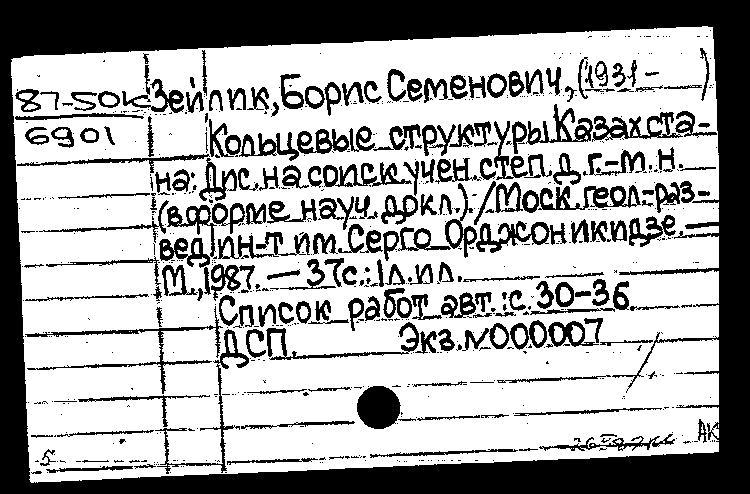 87-50к Зейлик, Борис Семенович, (1931- )
6901
Кольцевые структуры Казахста-
на: Дис. на соиск. учен. степ. д. г.-м. н.
(в форме науч. докл.). / Моск. геол.-раз-
вед. ин-т им. Серго Орджоникидзе. —
М., 1987. — 37с.: 1л. ил.
Список работ авт.: с. 30-36.
ДСП. Экз. №000007.
АК
5